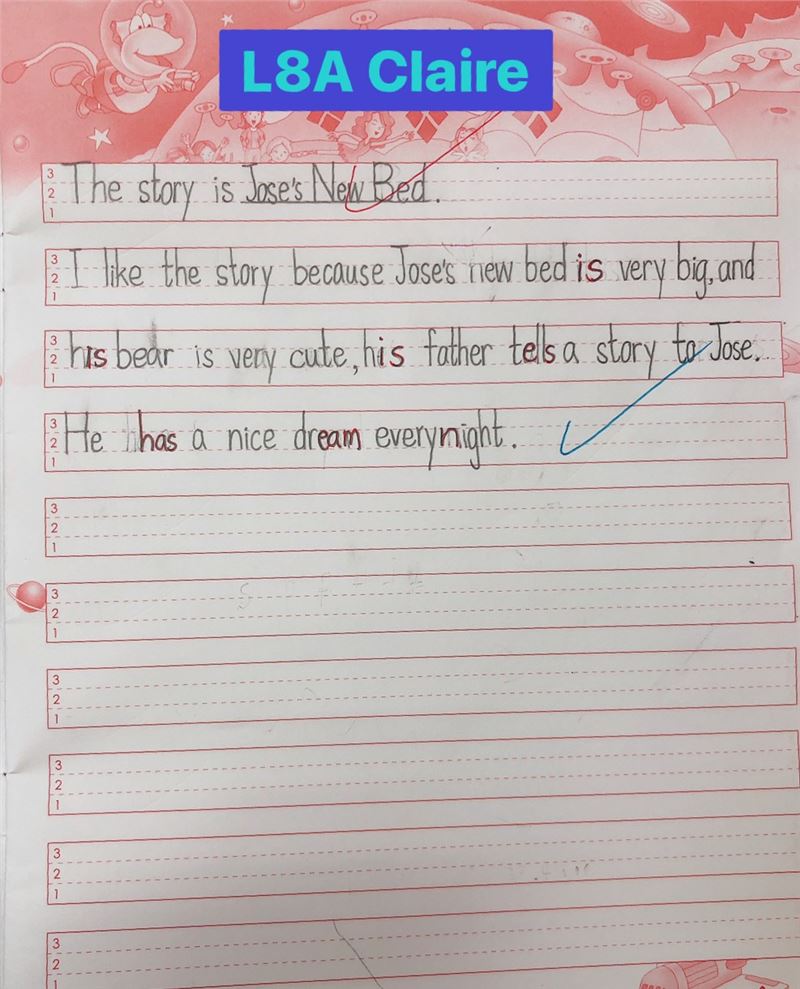 L8A Claire
3
2
1
The story is Jose's New Bed.
3
2
1
I like the story because Jose's new bed is very big, and
3
2
1
his bear is very cute, his father tells a story to Jose.
3
2
1
He has a nice dream everynight.
3
2
1
3
2
1
3
2
1
3
2
1
3
2
1
3
2
1